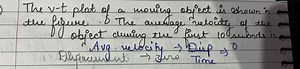 The v-t plot of a moving object is shown in
the figure. The average velocity of the
object during the first 10 seconds is
Avg. velocity → Disp → 0
Displacement → zero Time